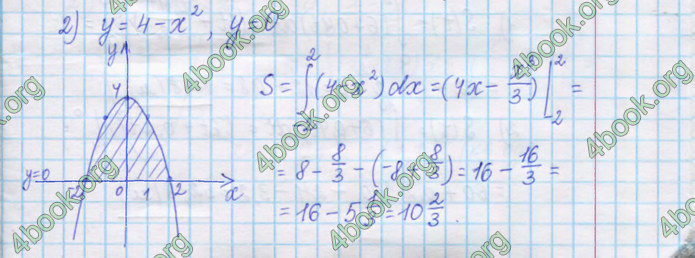 2) y = 4 - x², y = 0
y
4
y=0 -2 0 1 2 x
S = ∫₋₂² (4 - x²) dx = (4x - x³/3) |₋₂² =
= 8 - 8/3 - (-8 + 8/3) = 16 - 16/3 =
= 16 - 5 1/3 = 10 2/3.
4book.org
4book.org
4book.org
4book.org
4book.org
4book.org
4book.org
4book.org
4book.org